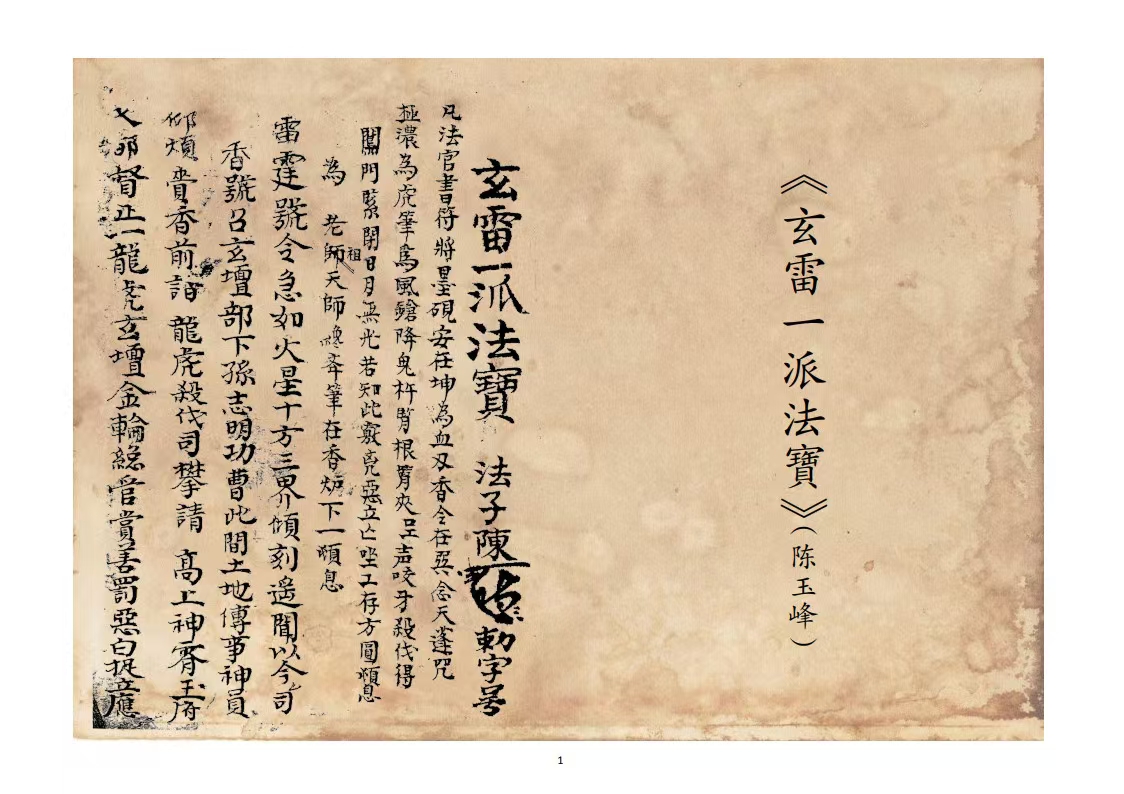 《玄雷一派法寶》(陈玉峰)
玄雷一派法寶 法子陳 勅字号
凡法官書符將墨硯安在坤為血刄香令在巽念天蓬咒
極濃為虎筆為風鎗降鬼杵 根 夾 声咬牙殺伐得
閗門緊閉日月無光若知此竅 惡立亡坐工存方圓頫息
為 老師祖天師 筆在香炉下一頫息
雷霆號令急如火星十方三界傾刻遥聞以今司
香號召玄壇部下孫志明功曹此間土地傳事神員
仰煩賫香前詣 龍虎殺伐司攀請 高上神霄玉府
都督正一龍虎玄壇金輪總管賞善罰惡白捉立應
1